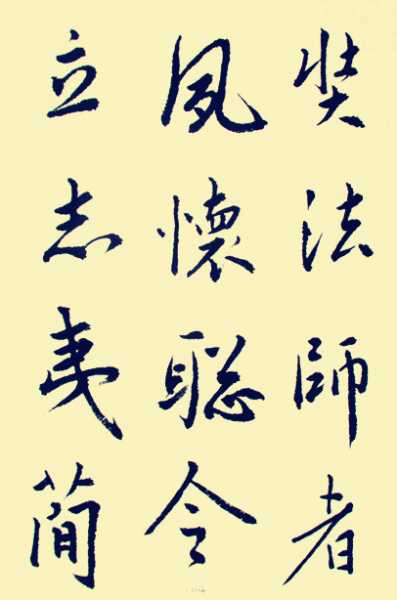 奘法師者
夙懷聰令
立志夷簡